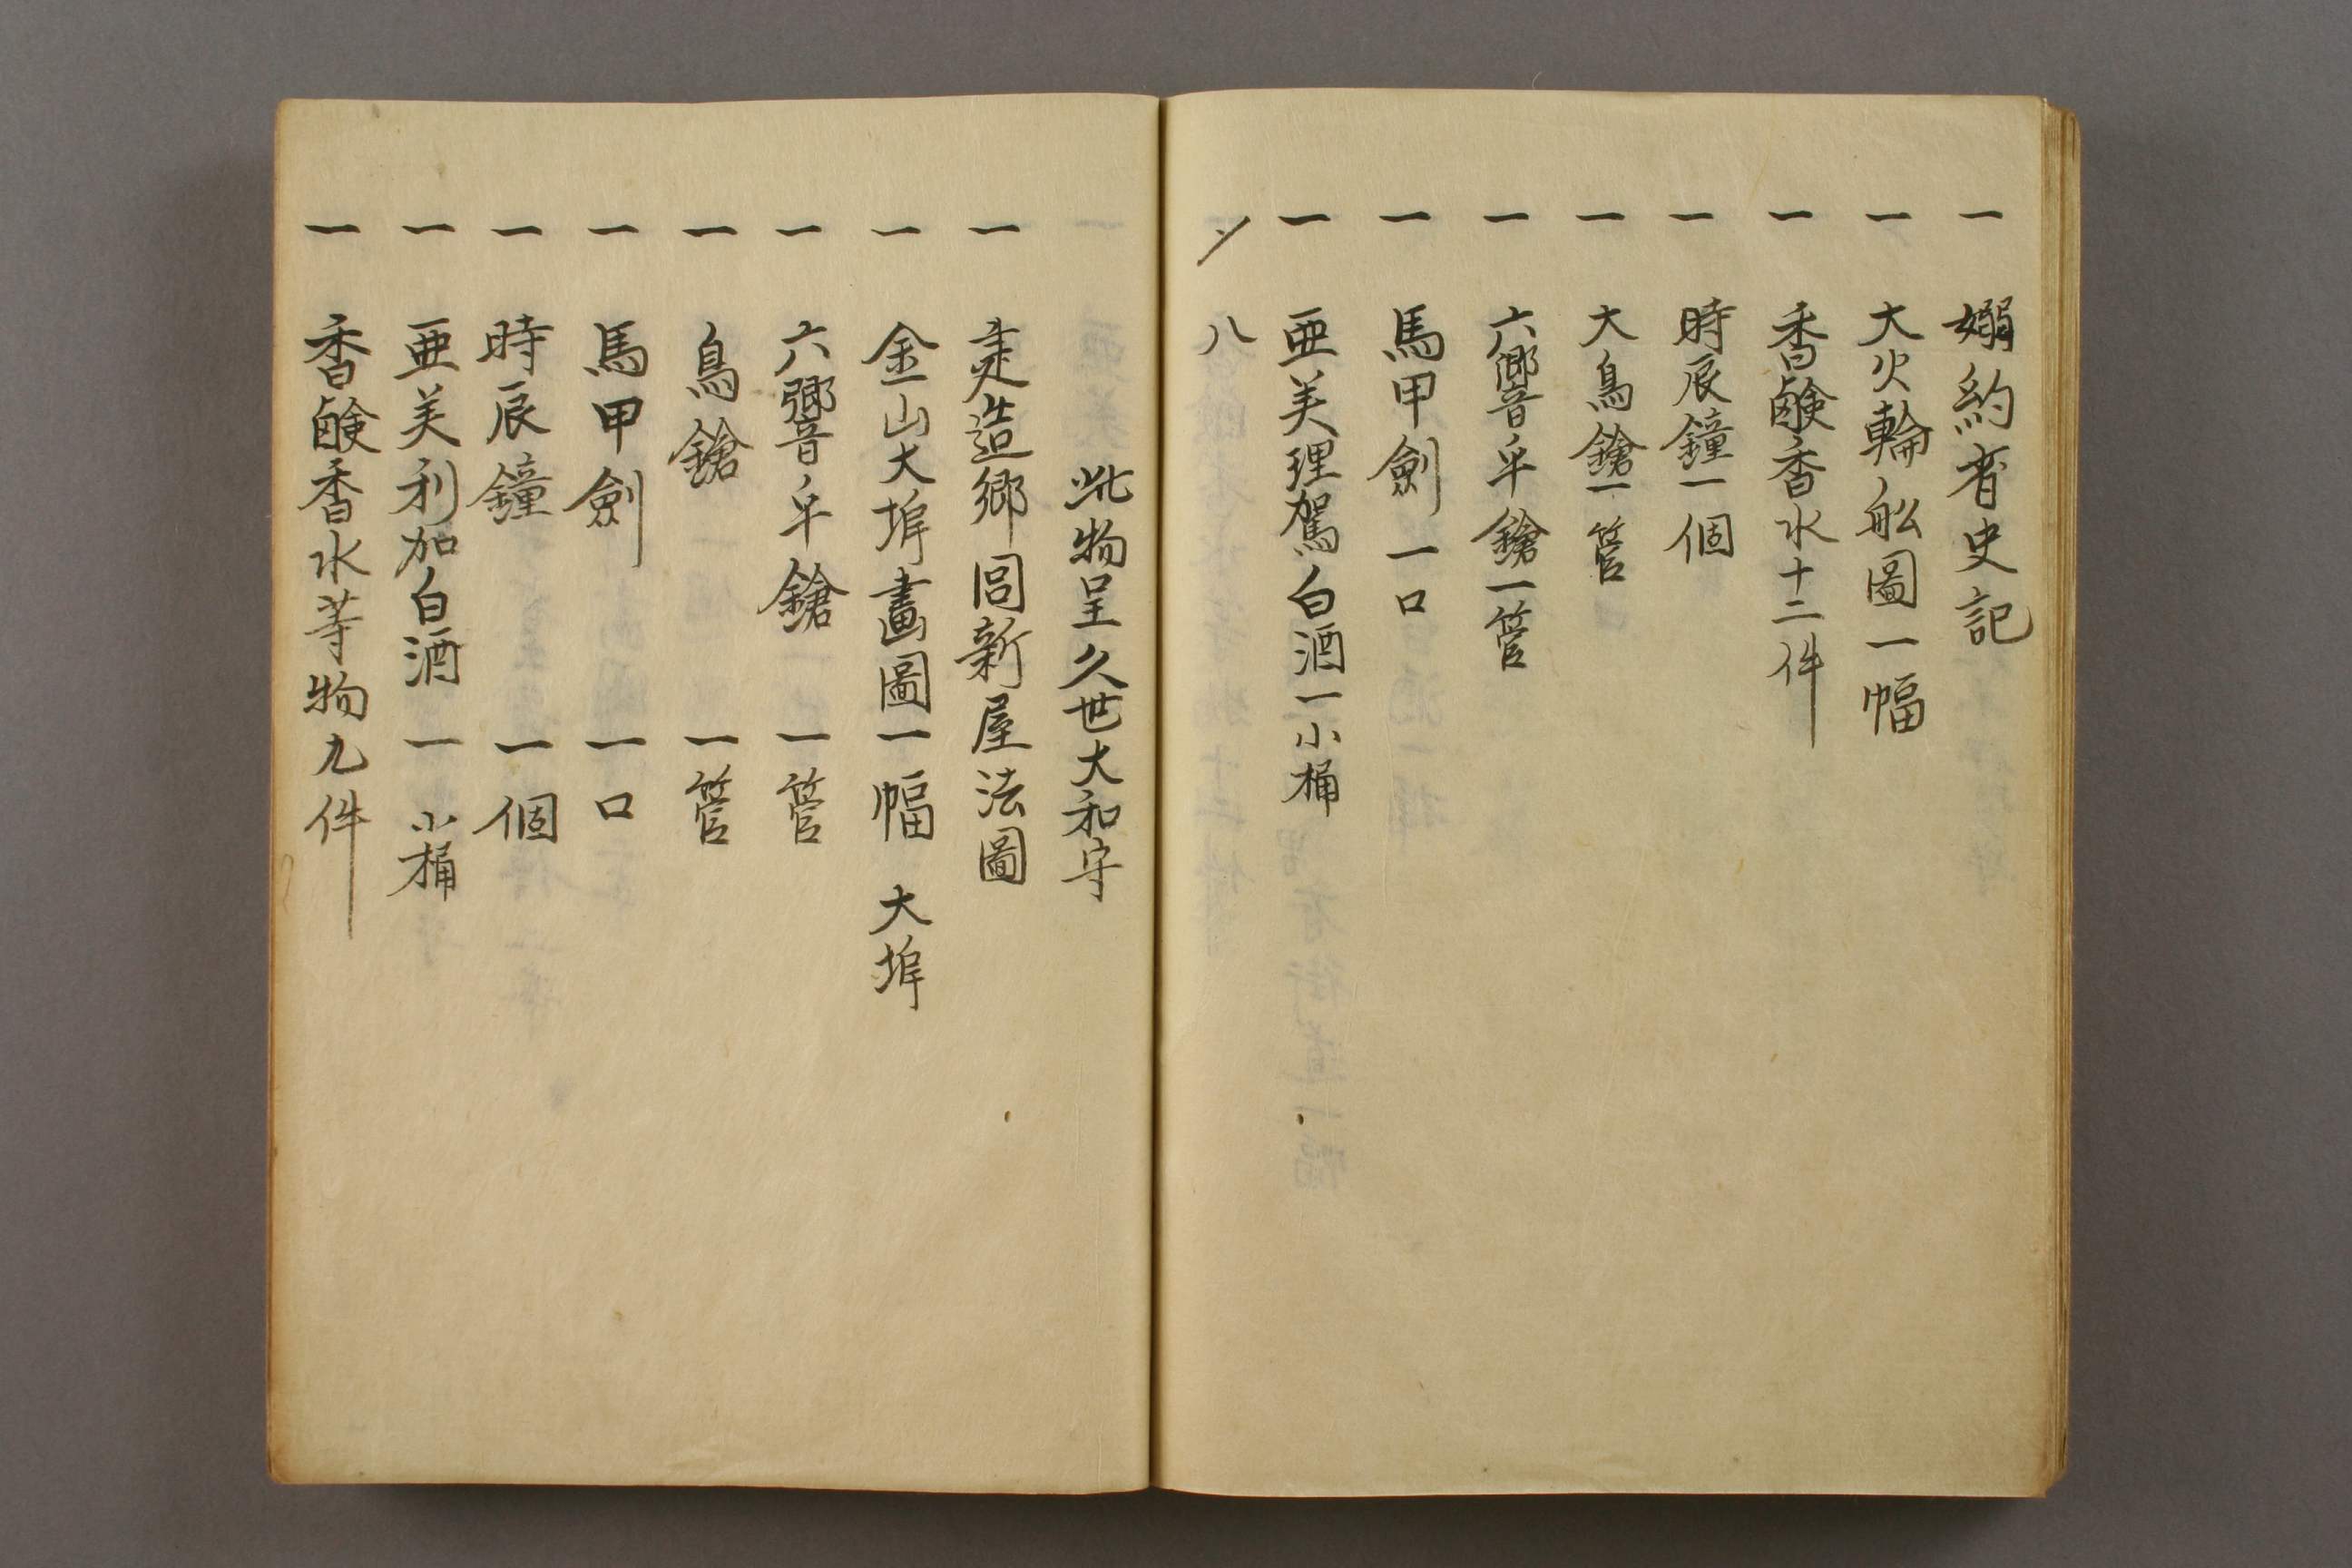 一 嫋約者史記
一 大火輪舩圖一幅
一 香鹸香水十二件
一 時辰鐘一個
一 大鳥鎗一管
一 六響手鎗一管
一 馬甲劍一口
一 亜美理駕白酒一小桶
八
此物呈久世大和守
一 走造郷間新屋法圖
一 金山大埠畫圖一幅 大埠
一 六響手鎗 一管
一 鳥鎗 一管
一 馬甲劍 一口
一 時辰鐘 一個
一 亜美利加白酒 一小桶
一 香鹸香水等物九件